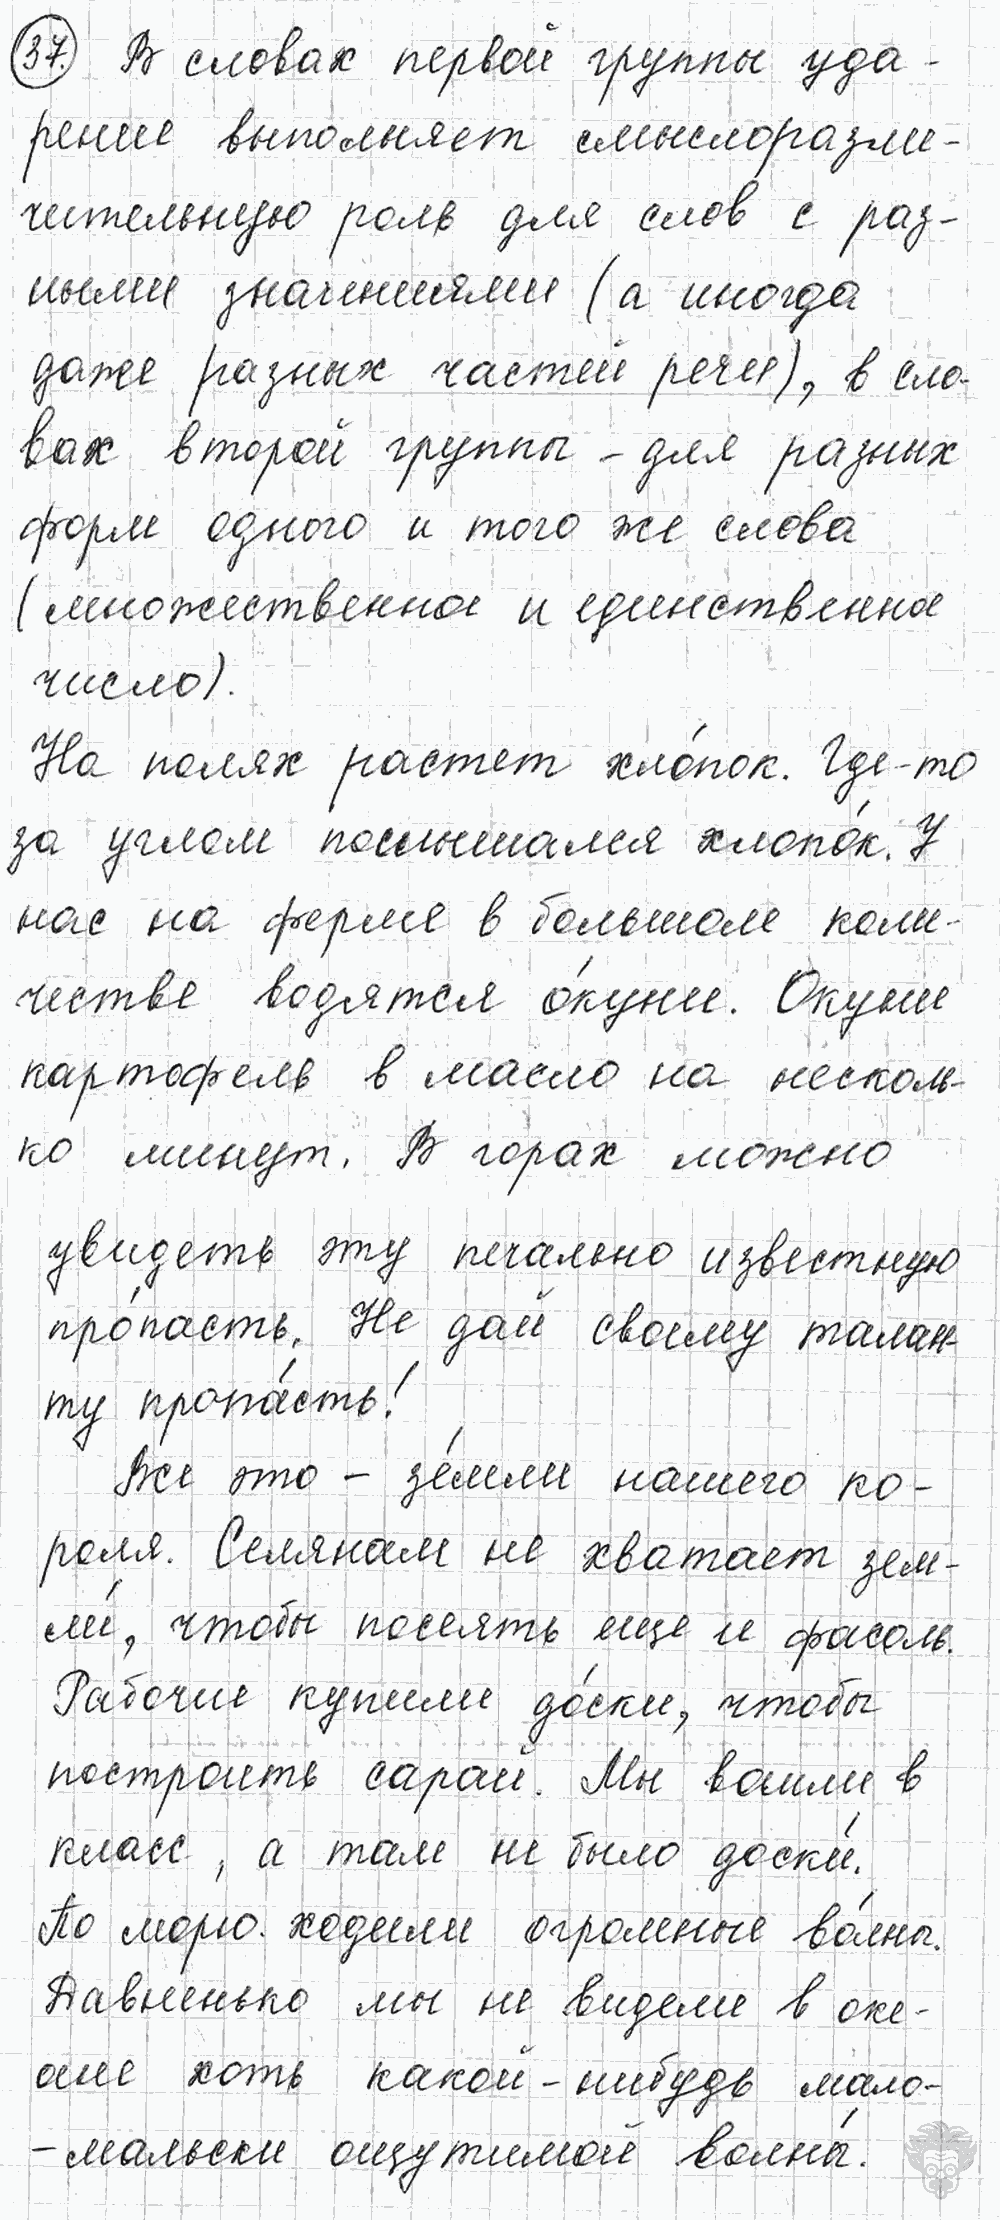 37. В словах первой группы уда-
рение выполняет смыслоразли-
чительную роль для слов с раз-
ными значениями (а иногда
даже разных частей речи), в сло-
вах второй группы – для разных
форм одного и того же слова
(множественное и единственное
число).
На полях растет хло́пок. Где-то
за углом послышался хлопо́к. У
нас на ферме в большом коли-
честве водятся о́куни. Окуни
картофель в масло на несколь-
ко минут. В горах можно
увидеть эту печально известную
про́пасть. Не дай своему талан-
ту пропа́сть!
Все это – зе́мли нашего ко-
роля. Селянам не хватает зем-
ли́, чтобы посеять еще и фасоль.
Рабочие купили до́ски, чтобы
построить сарай. Мы вошли в
класс, а там не было доски́.
По морю ходили огромные во́лны.
Давненько мы не видели в оке-
ане хоть какой-нибудь мало-
-мальски ощутимой волны́.